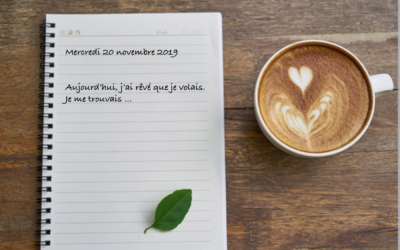 Mercredi 20 novembre 2019
Aujourd'hui, j'ai rêvé que je volais.
Je me trouvais ...